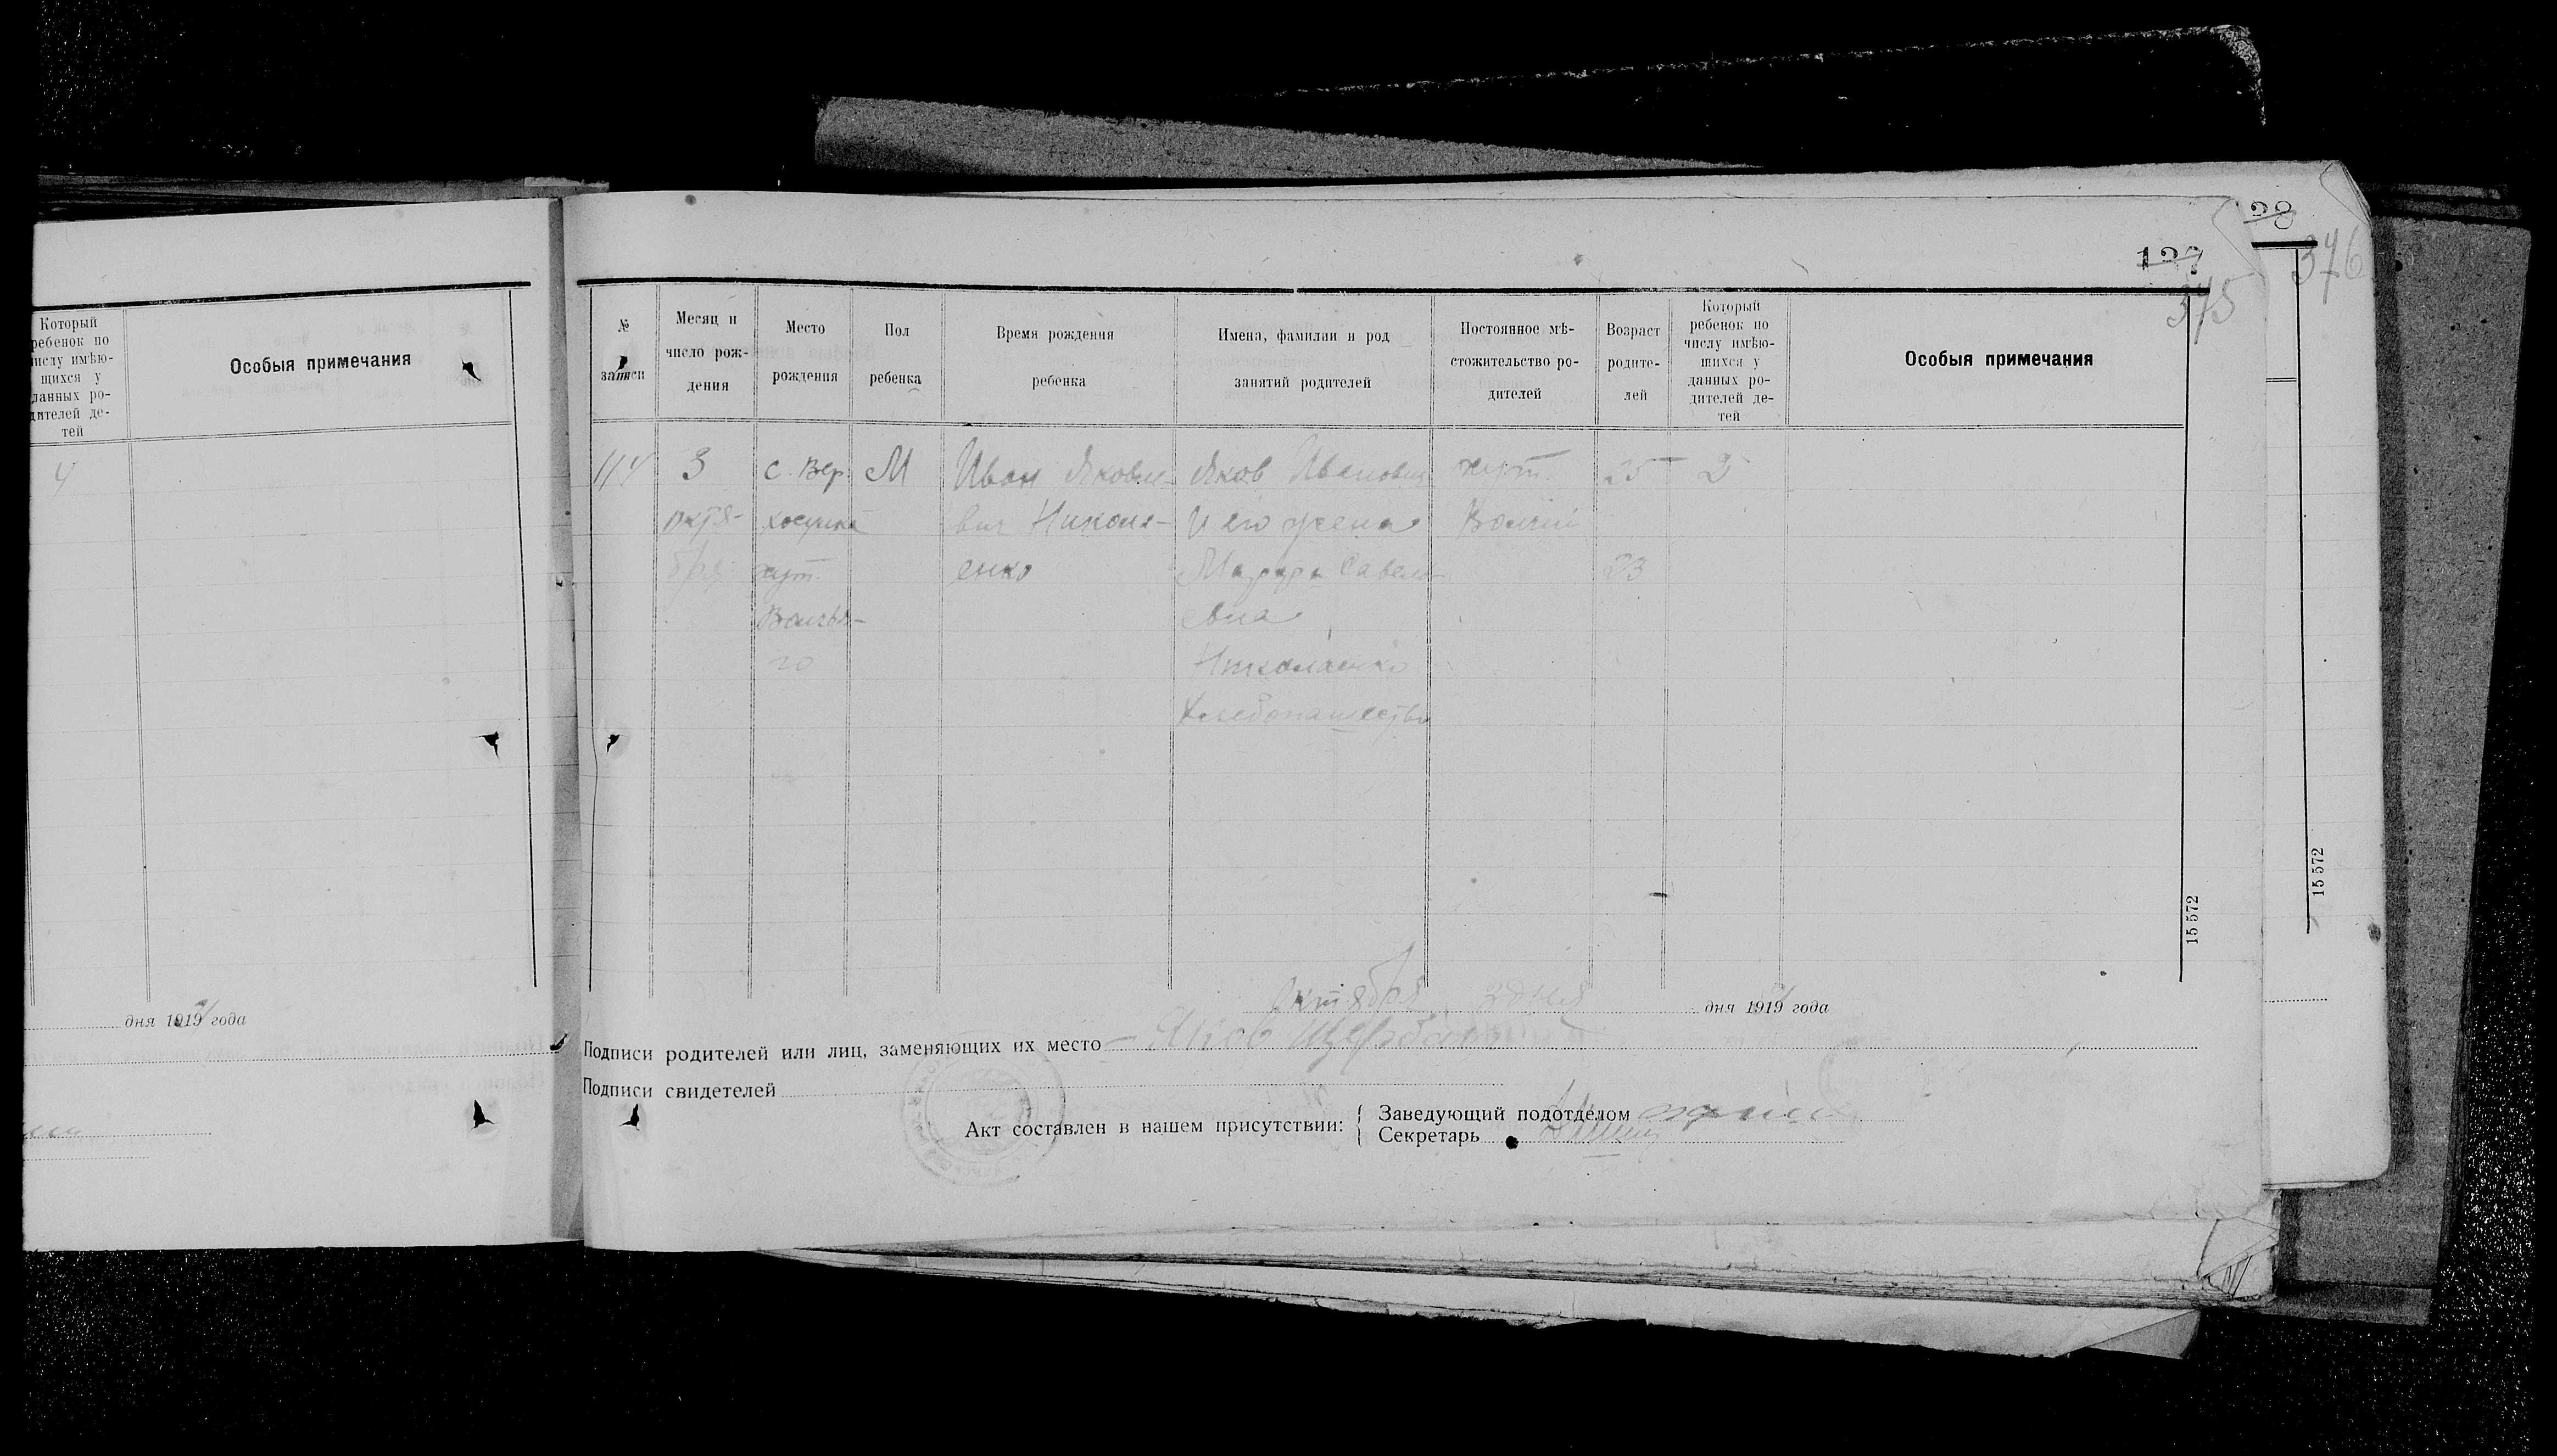 28
376
127
375
Который ребенок по числу имѣю-щихся у данных ро-дителей де-тей
Особыя примечания
4
дня 1919 года
№ записи
Месяц и число рож-дения
Место рождения
Пол ребенка
Время рождения ребенка
Имена, фамилии и род занятий родителей
Постоянное мѣ-стожительство ро-дителей
Возраст родите-лей
Который ребенок по числу имѣю-щихся у данных ро-дителей де-тей
Особыя примечания
114
3
октя-
бря
с. Вер.
хут.
Волчья-
го
М
Иван Яковле-
вич Никола-
енко
Яков Иванович
и его жена
Савель-
евна
Николаенко
Хлебопашество
хут.
Волчий
25
23
2
15 572
15 572
Октября 3 дня дня 1919 года
Подписи родителей или лиц, заменяющих их место Яков
Подписи свидетелей
Акт составлен в нашем присутствии:
Заведующий подотделом
Секретарь